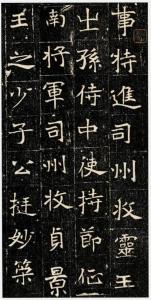 事特進司州牧靈王
之孫侍中使持節征
南將軍司州牧貞景
王之少子公挺妙築